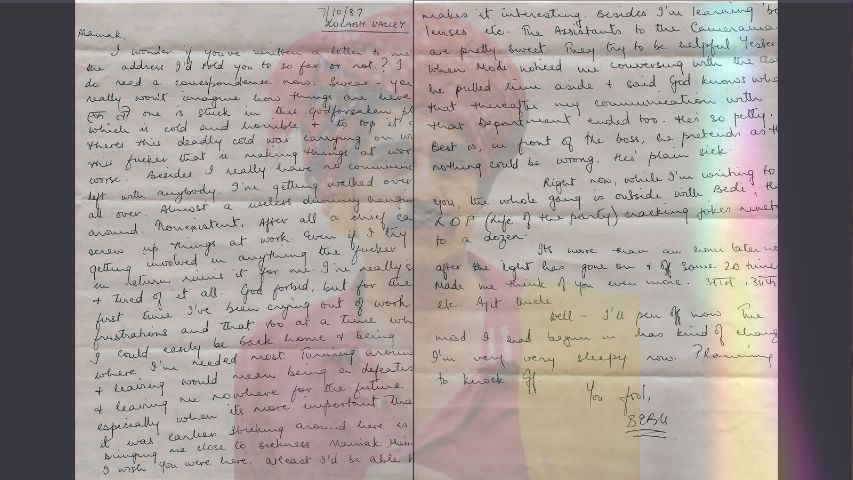 7/10/87
KOLABH VALLEY
Mamak,
I wonder if you've written a letter to me
the address I'd told you to so far or not? I
do need a correspondence now. Swear - you
really won't imagine how things are here
one is stuck in this Godforsaken
which is cold and horrible + to top it
theres this deadly cold war carrying on
this fucker that is making things at work
worse. Besides I really have no
left with anybody. I'm getting walked over
all over. Almost a useless dummy hanging
around. Nonexistent. After all a chief
screw up things at work. Even if I try
getting involved in anything the fucker
in return ruins it for me. I'm really
+ tired of it all. God forbid, but for the
first time I've been crying out of work
frustrations and that too at a time
I could easily be back home + being
where I'm needed most. Turning around
+ leaving would mean being a
+ leaving me nowhere for the future
especially when its more important
it was earlier. Sticking around here is
bringing me close to sickness. Mamak
I wish you were here. atleast I'd be able
makes it interesting. Besides I'm learning
lenses etc. The Assistants to the
are pretty sweet. They try to be helpful.
when Modi noticed me conversing with the
he pulled him aside + said God knows
that thereafter my communication with
that Department ended too. He's so petty.
Best is, in front of the boss, he pretends as
nothing could be wrong. He's plain sick.
Right now, while I'm writing to
you, the whole gang is outside with Bedi
LOP (Life of the party) cracking jokes
to a dozen.
Its more than an hour later
after the light has gone on + off some 20 times
Made me think of you even more.
etc. Ajit Uncle.
Well - I'll pen off now. The
mood I had begun in has kind of
I'm very very sleepy now. Planning
to knock off.
You fool,
BEBU